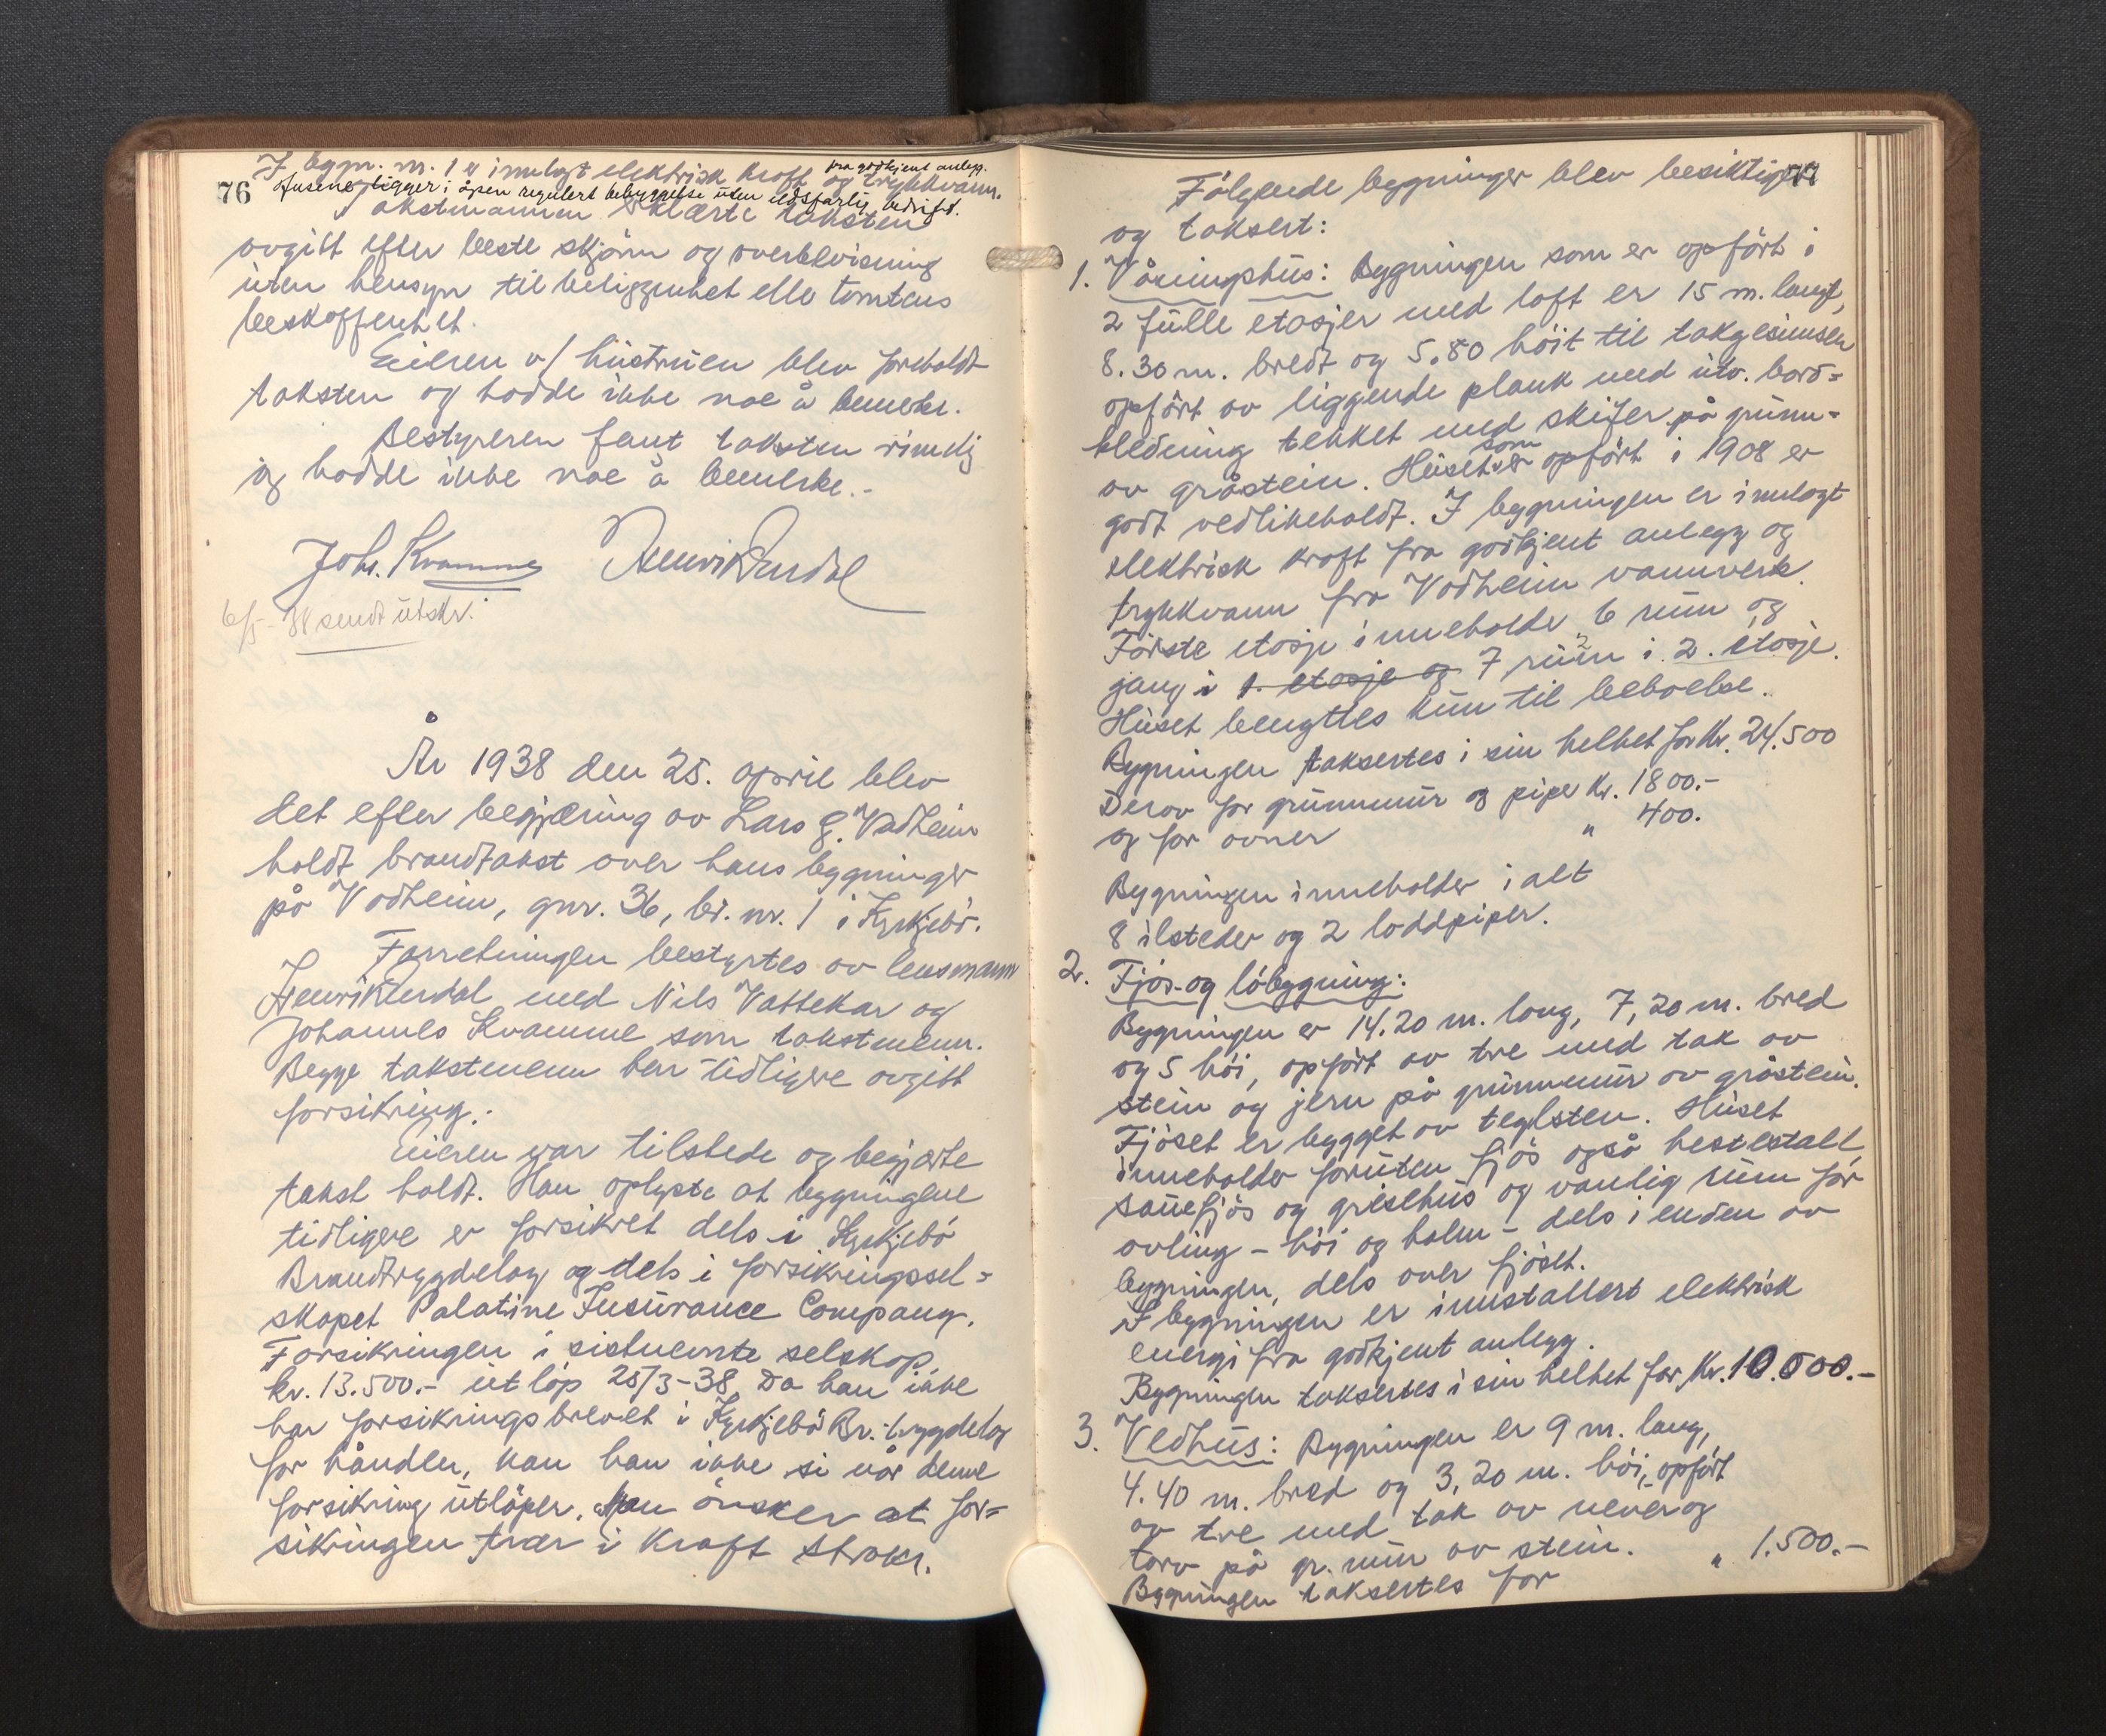 76
I bygn. nr. 1 er innlagt elektrisk kraft fra godkjent anlegg. og trykkvann.
Husene ligger i åpen regulert bebyggelse uten ildsfarlig bedrift.
Takstmannen erklærte taksten
avgitt efter beste skjønn og overbevisning
uten hensyn til beliggenhet eller tomtens
beskaffenhet.
Eieren v/ hustruen blev foreholdt
taksten og hadde ikke noe å bemerke.
Bestyreren fant taksten rimelig
og hadde ikke noe å bemerke.-
Johs. Kvamme Henrik Ferdal
6/5-38 sendt utskr.
År 1938 den 25. april blev
det efter begjæring av Lars E. Vadheim
holdt brandtakst over hans bygninger
på Vadheim, gnr. 36, br. nr. 1 i Kyrkjebø.
Forretningen bestyrtes av lensmann
Henrik Ferdal med Nils Vattekar og
Johannes Kvamme som takstmenn.
Begge takstmenn har tidligere avgitt
forsikring.
Eieren var tilstede og begjærte
takst holdt. Han oplyste at bygningene
tidligere er forsikret dels i Kyrkjebø
Brandtrygdelag og dels i forsikringssel=
skapet Palatine Insurance Company.
Forsikringen i sistnevnte selskap,
kr. 13.500.- utløp 25/3-38. Da han ikke
har forsikringsbrevet i Kyrkjebø Br.trygdelag
for hånden, kan han ikke si når denne
forsikring utløper. Han ønsker at for=
sikringen trær i kraft straks.
77
Følgende bygninger blev besiktiget
og taksert:
1. Våningshus: Bygningen som er opført i
2 fulle etasjer med loft er 15 m. langt,
8.30 m. bredt og 5.80 høit til takgesimsen
opført av liggende plank med utv. bord=
kledning tekket med skifer på grunn=
av gråstein. Huset som er opført i 1908 er
godt vedlikeholdt. I bygningen er innlagt
elektrisk kraft fra godkjent anlegg og
trykkvann fra Vadheim vannverk.
Første etasje inneholder 6 rum og
gang i 1. etasje og 7 rum i 2. etasje.
Huset benyttes kun til beboelse.
Bygningen taksertes i sin helhet for Kr. 24.500
Derav for grunnmur og piper Kr. 1800.-
og for ovner " 400.
Bygningen inneholder i alt
8 ilsteder og 2 loddpiper.
2. Fjøs- og løbygning:
Bygningen er 14.20 m. lang, 7,20 m. bred
og 5 høi, opført av tre med tak av
stein og jern på grunnmur av gråstein.
Fjøset er bygget av teglsten. Huset
inneholder foruten fjøs også hestestall,
sauefjøs og grisehus og vanlig rum for
avling - høi og halm - dels i enden av
bygningen, dels over fjøset.
I bygningen er innstallert elektrisk
energi fra godkjent anlegg.
Bygningen taksertes i sin helhet for Kr. 10.500.-
3. Vedhus: Bygningen er 9 m. lang,
4.40 m. bred og 3,20 m. høi, opført
av tre med tak av never og
torv på gr. mur av stein.
Bygningen taksertes for " 1.500.-